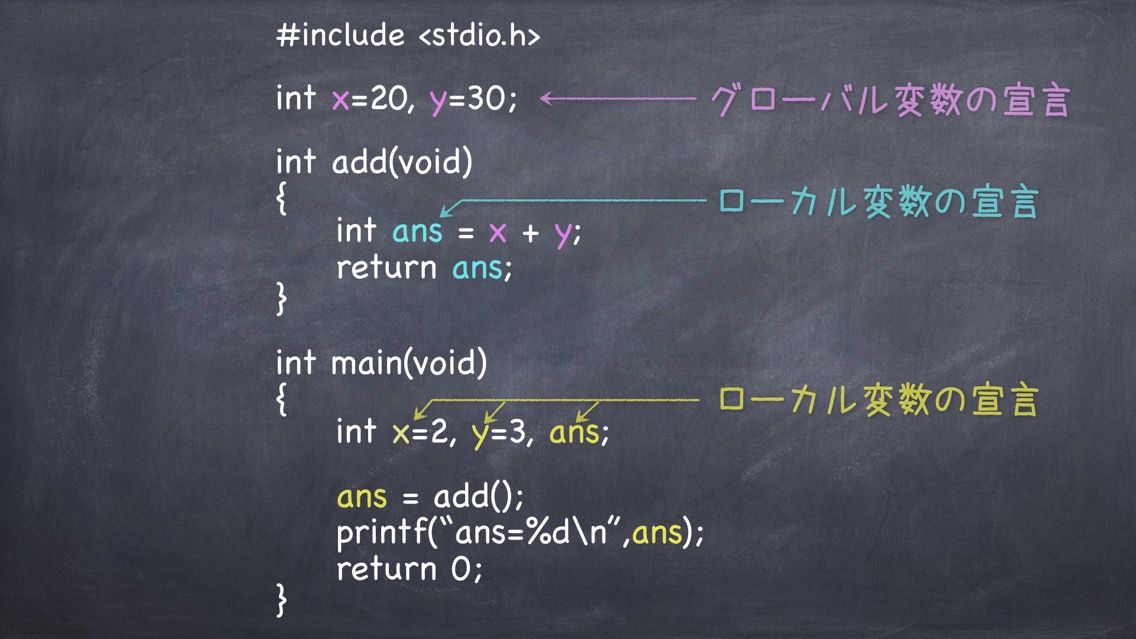 #include <stdio.h>
int x=20, y=30;
グローバル変数の宣言
int add(void)
{
ローカル変数の宣言
int ans = x + y;
return ans;
}
int main(void)
{
ローカル変数の宣言
int x=2, y=3, ans;
ans = add();
printf(“ans=%d\n”,ans);
return 0;
}